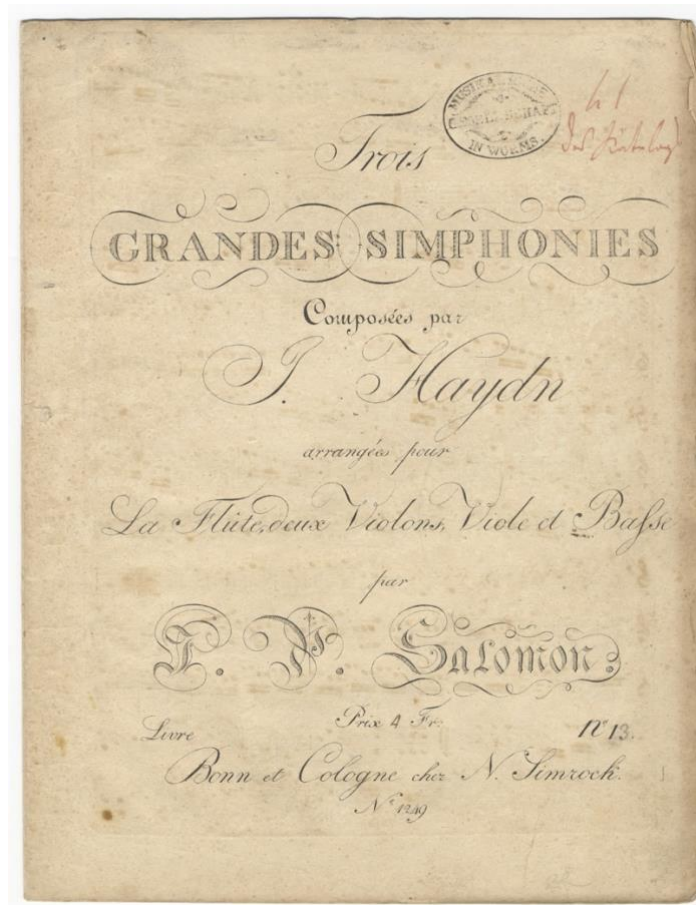 Trois
MUSIKAL
IN WORMS.
41
GRANDES SIMPHONIES
Composées par
J. Haydn
arrangées pour
La Flûte, deux Violons, Viole et Basse
par
J. P. Salomon.
Prix 4 Fr.
Livre
No 13.
Bonn et Cologne chez N. Simrock.
No 1249